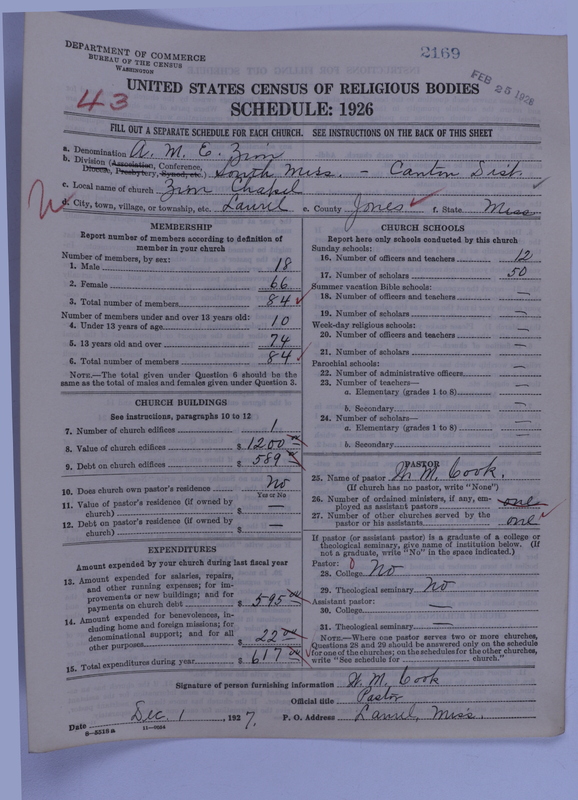 DEPARTMENT OF COMMERCE
BUREAU OF THE CENSUS
WASHINGTON
2169
FEB 25 1928
43
UNITED STATES CENSUS OF RELIGIOUS BODIES
SCHEDULE: 1926
FILL OUT A SEPARATE SCHEDULE FOR EACH CHURCH. SEE INSTRUCTIONS ON THE BACK OF THIS SHEET
a. Denomination A. M. E. Zion
b. Division (Association, Conference, Diocese, Presbytery, Synod, etc.) South Miss. - Canton Dist.
c. Local name of church Zion Chapel
d. City, town, village, or township, etc. Laurel e. County Jones f. State Miss
MEMBERSHIP
Report number of members according to definition of member in your church
Number of members, by sex:
1. Male 18
2. Female 66
3. Total number of members 84
Number of members under and over 13 years old:
4. Under 13 years of age 10
5. 13 years old and over 74
6. Total number of members 84
NOTE.—The total given under Question 6 should be the same as the total of males and females given under Question 3.
CHURCH BUILDINGS
See instructions, paragraphs 10 to 12
7. Number of church edifices 1
8. Value of church edifices $ 1200.00
9. Debt on church edifices $ 589
10. Does church own pastor's residence No
Yes or No
11. Value of pastor's residence (if owned by church) $ —
12. Debt on pastor's residence (if owned by church) $ —
EXPENDITURES
Amount expended by your church during last fiscal year
13. Amount expended for salaries, repairs, and other running expenses; for improvements or new buildings; and for payments on church debt $ 595.00
14. Amount expended for benevolences, including home and foreign missions; for denominational support; and for all other purposes $ 22.00
15. Total expenditures during year $ 617.00
CHURCH SCHOOLS
Report here only schools conducted by this church
Sunday schools:
16. Number of officers and teachers 12
17. Number of scholars 50
Summer vacation Bible schools:
18. Number of officers and teachers —
19. Number of scholars —
Week-day religious schools:
20. Number of officers and teachers —
21. Number of scholars —
Parochial schools:
22. Number of administrative officers —
23. Number of teachers—
a. Elementary (grades 1 to 8) —
b. Secondary —
24. Number of scholars—
a. Elementary (grades 1 to 8) —
b. Secondary —
PASTOR
25. Name of pastor W. M. Cook.
(If church has no pastor, write "None")
26. Number of ordained ministers, if any, employed as assistant pastors one
27. Number of other churches served by the pastor or his assistants one
If pastor (or assistant pastor) is a graduate of a college or theological seminary, give name of institution below. (If not a graduate, write "No" in the space indicated.)
Pastor:
28. College No
29. Theological seminary No
Assistant pastor:
30. College —
31. Theological seminary —
NOTE.—Where one pastor serves two or more churches, Questions 28 and 29 should be answered only on the schedule for one of the churches; on the schedules for the other churches, write "See schedule for church."
Signature of person furnishing information W. M. Cook
Official title Pastor
Date Dec. 1, 1927. P. O. Address Laurel, Miss.
8-5516a 11-9054